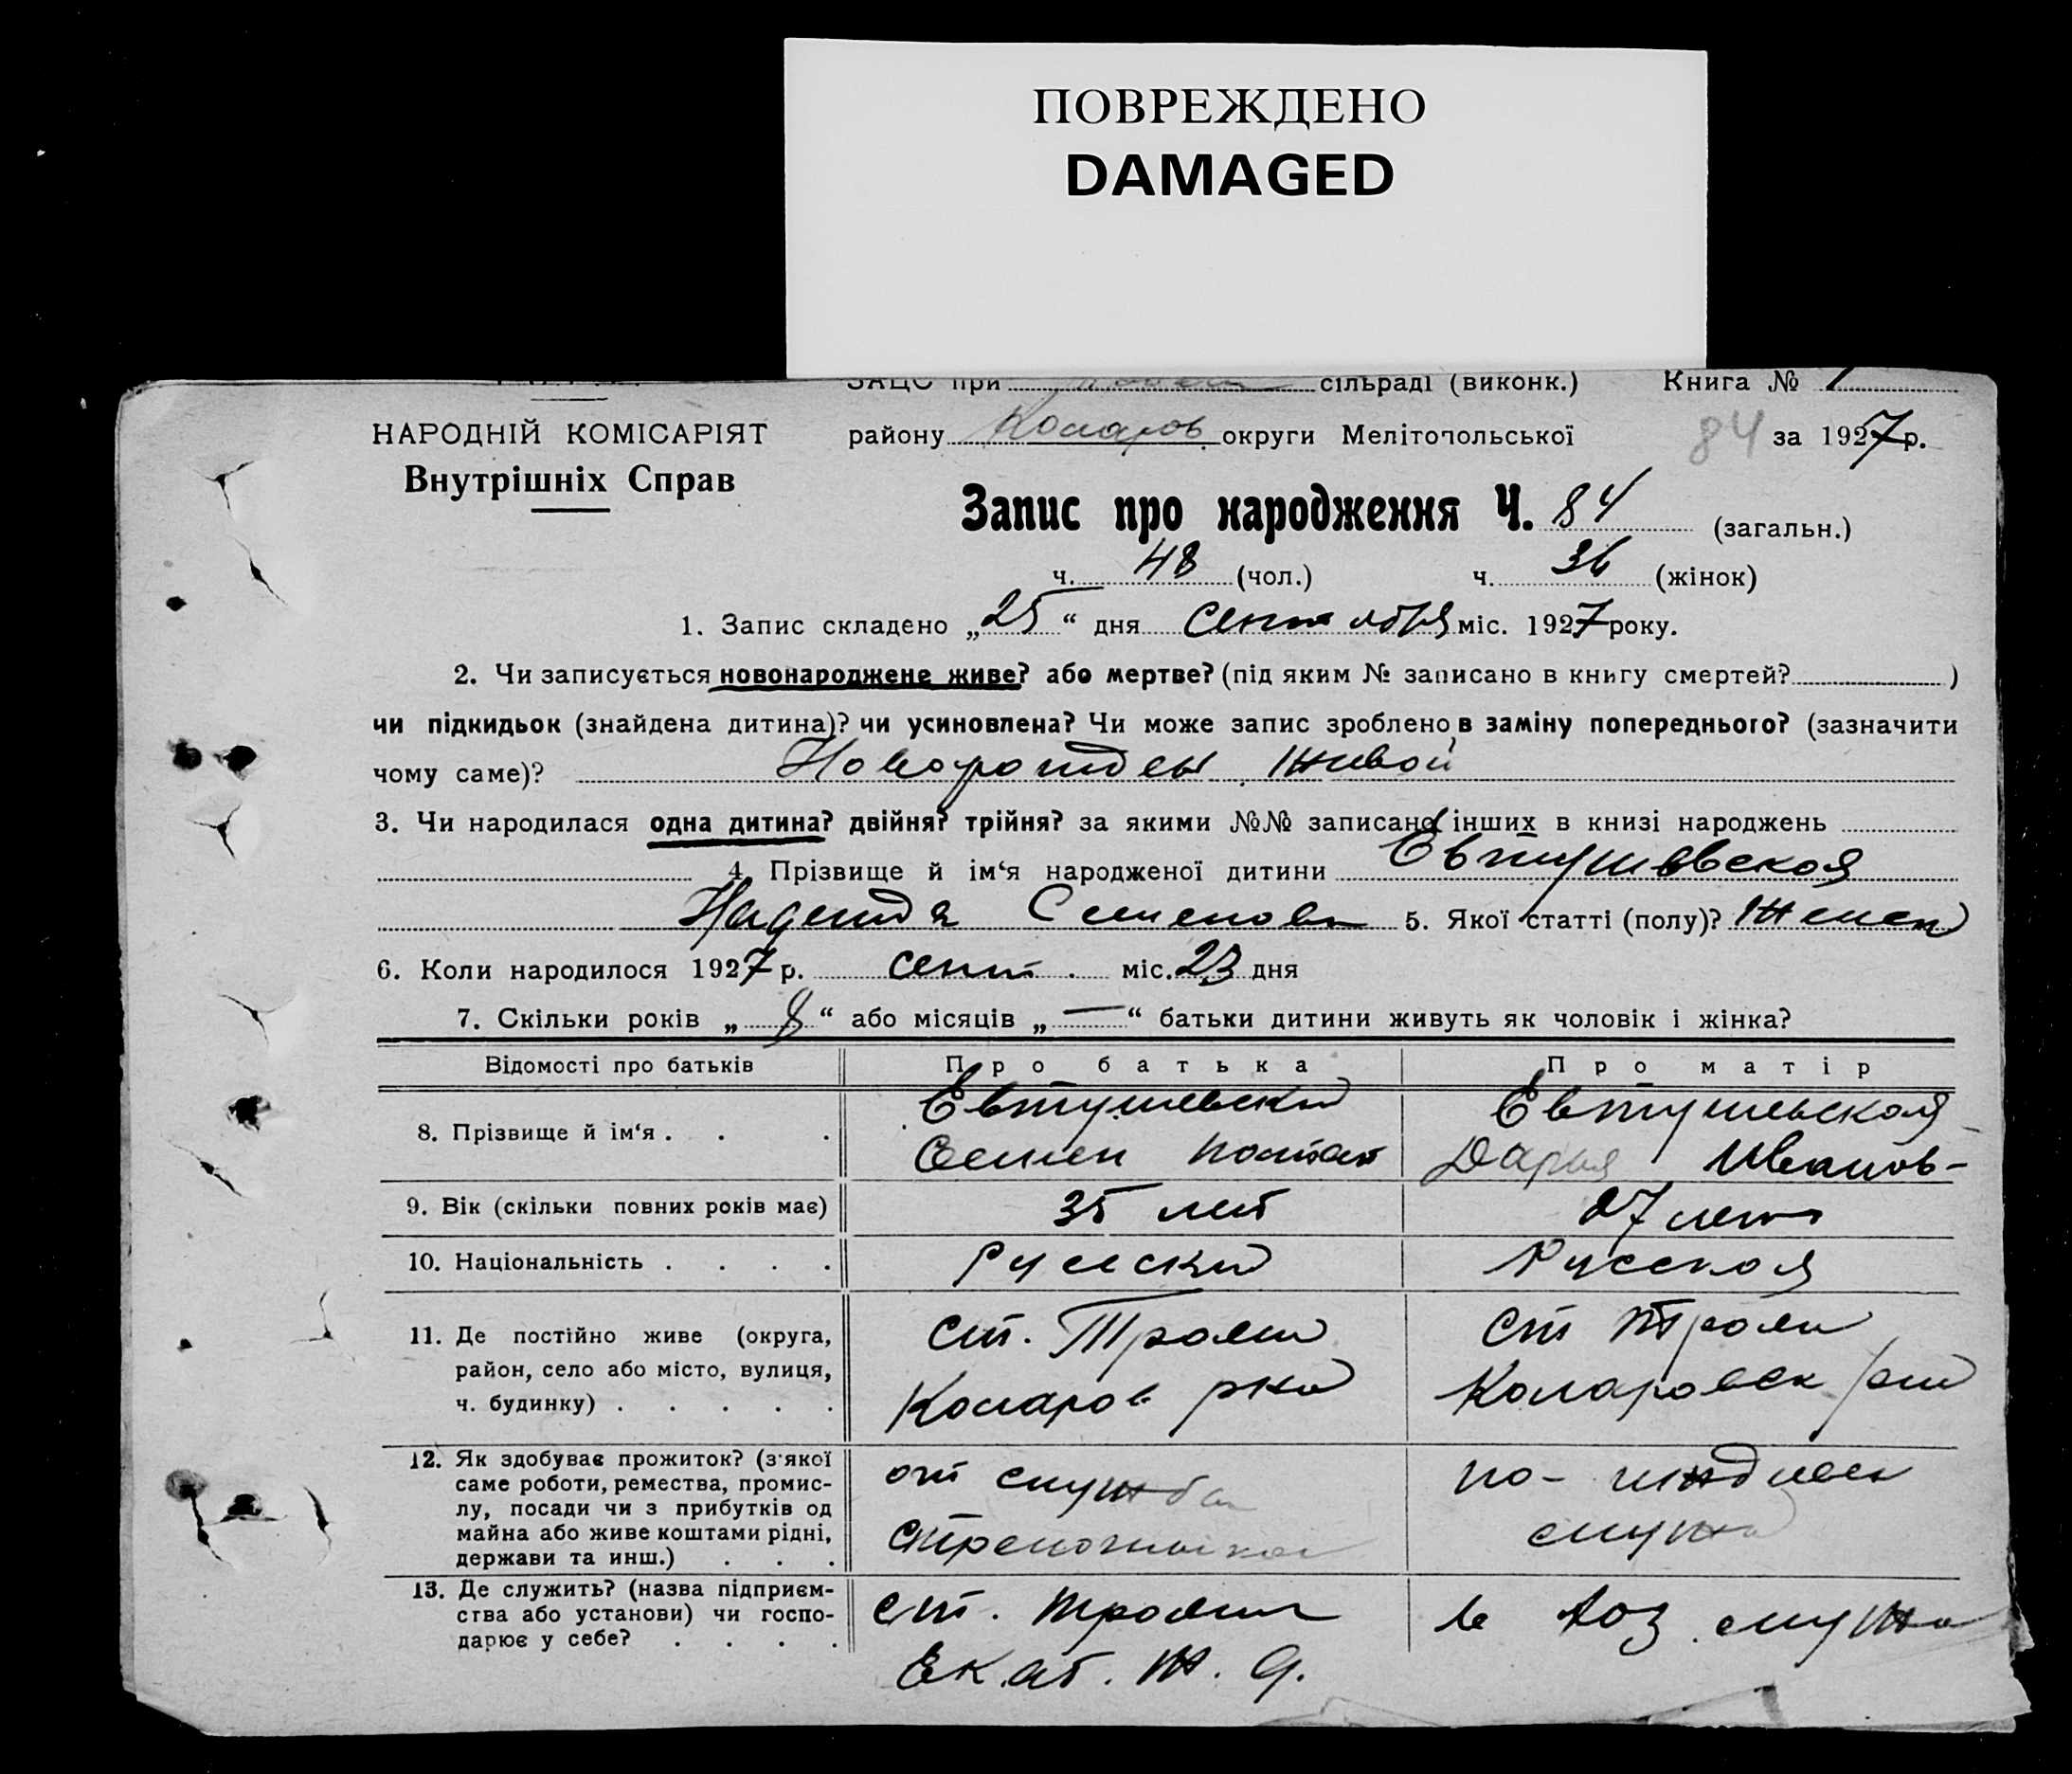 ПОВРЕЖДЕНО
DAMAGED
ЗАЦС при сільраді (виконк.) Книга № 1
НАРОДНІЙ КОМІСАРІЯТ
Внутрішніх Справ
району Комаров округи Мелітопольської 84 за 1927 р.
Запис про народження Ч. 84 (загальн.)
ч. 48 (чол.) ч. 36 (жінок)
1. Запис складено „25“ дня сентября міс. 1927 року.
2. Чи записується новонароджене живе? або мертве? (під яким № записано в книгу смертей? )
чи підкидьок (знайдена дитина)? чи усиновлена? Чи може запис зроблено в заміну попереднього? (зазначити
чому саме)? Новорожден живой
3. Чи народилася одна дитина? двійня? трійня? за якими №№ записано інших в книзі народжень
4. Прізвище й ім‘я народженої дитини Евтушевская
Надежда Семенова 5. Якої статті (полу)? Женск
6. Коли народилося 1927 р. сент. міс. 23 дня
7. Скільки років „8“ або місяців „—“ батьки дитини живуть як чоловік і жінка?
Відомості про батьків Про батька Про матір
8. Прізвище й ім‘я . . . Евтушевский Евтушевская
Семен Дарья Иванов-
9. Вік (скільки повних років має) 35 лет 27 лет
10. Національність . . . . Русский Русская
11. Де постійно живе (округа, район, село або місто, вулиця, ч. будинку) . . . . .
ст. Трояни ст Трояни
Комаров. рна Комаровск рна
12. Як здобуває прожиток? (з'якої саме роботи, ремества, промислу, посади чи з прибутків од майна або живе коштами рідні, держави та инш.) . . .
от служба по- иждивен
стрелочником мужа
13. Де служить? (назва підприємства або установи) чи господарює у себе? . . . .
ст. Трояни в хоз. мужа
Екат. ж. д.